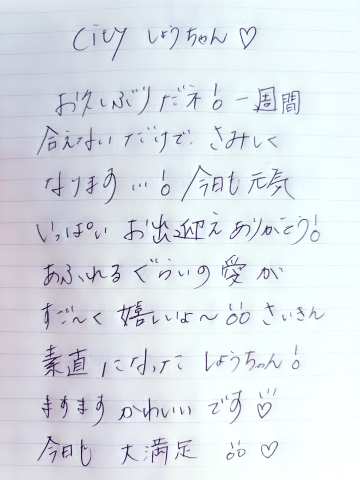 City しょうちゃん♡
お久しぶりだネ! 一週間
合えないだけで、さみしく
なります…! 今日も元気
いっぱい お出迎え ありがとう!
あふれるぐらいの愛が
すご〜く 嬉しいょ〜!! さいきん
素直になった しょうちゃん!
ますます かわいい です♡
今日も 大満足 !! ♡